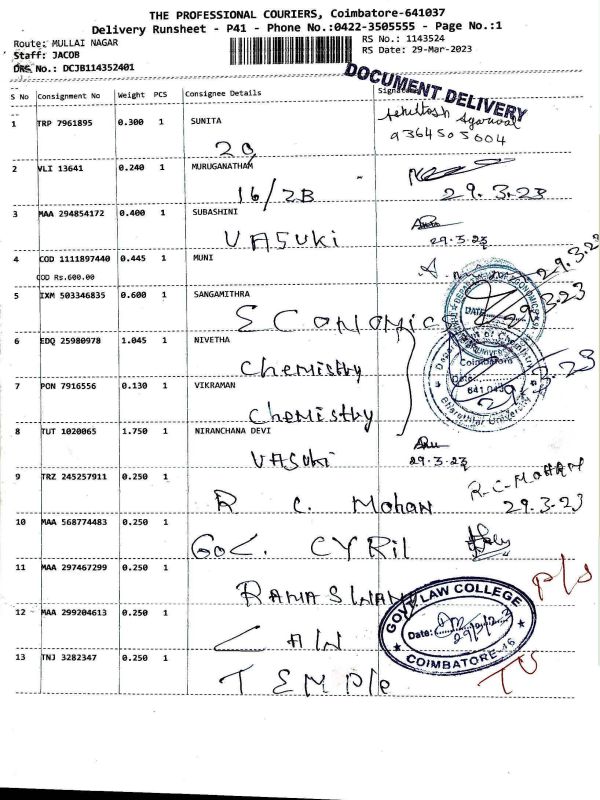 THE PROFESSIONAL COURIERS, Coimbatore-641037
Delivery Runsheet - P41 - Phone No.:0422-3505555 - Page No.:1
Route: MULLAI NAGAR
RS No.: 1143524
Staff: JACOB
RS Date: 29-Mar-2023
DRS No.: DCJB114352401
DOCUMENT DELIVERY
S No Consignment No Weight PCS Consignee Details Signature
1 TRP 7961895 0.300 1 SUNITA
Agarwal
9364505604
20
2 VLI 13641 0.240 1 MURUGANATHAM
16/2B 29.3.23
3 MAA 294854172 0.400 1 SUBASHINI
VASUKi 29.3.23
4 COD 1111897440 0.445 1 MUNI
COD Rs.600.00
29.3.23
5 IXM 503346835 0.600 1 SANGAMITHRA
ECONOMICS 29.3.23
DATE
6 EDQ 25980978 1.045 1 NIVETHA
Chemistry
Coimbatore
Date:
641 046
Bharathiar University
29.3.23
7 PON 7916556 0.130 1 VIKRAMAN
Chemistry
8 TUT 1020065 1.750 1 NIRANCHANA DEVI
VASUKi 29.3.23
9 TRZ 245257911 0.250 1
R C. Mohan R-C-MOHAN
29.3.23
10 MAA 568774483 0.250 1
GoC. CYRiL
11 MAA 297467299 0.250 1
RAMASWAMY P/S
12 MAA 299204613 0.250 1
LAW
GOVT. LAW COLLEGE
Date:
COIMBATORE-46
13 TNJ 3282347 0.250 1
TEMPle